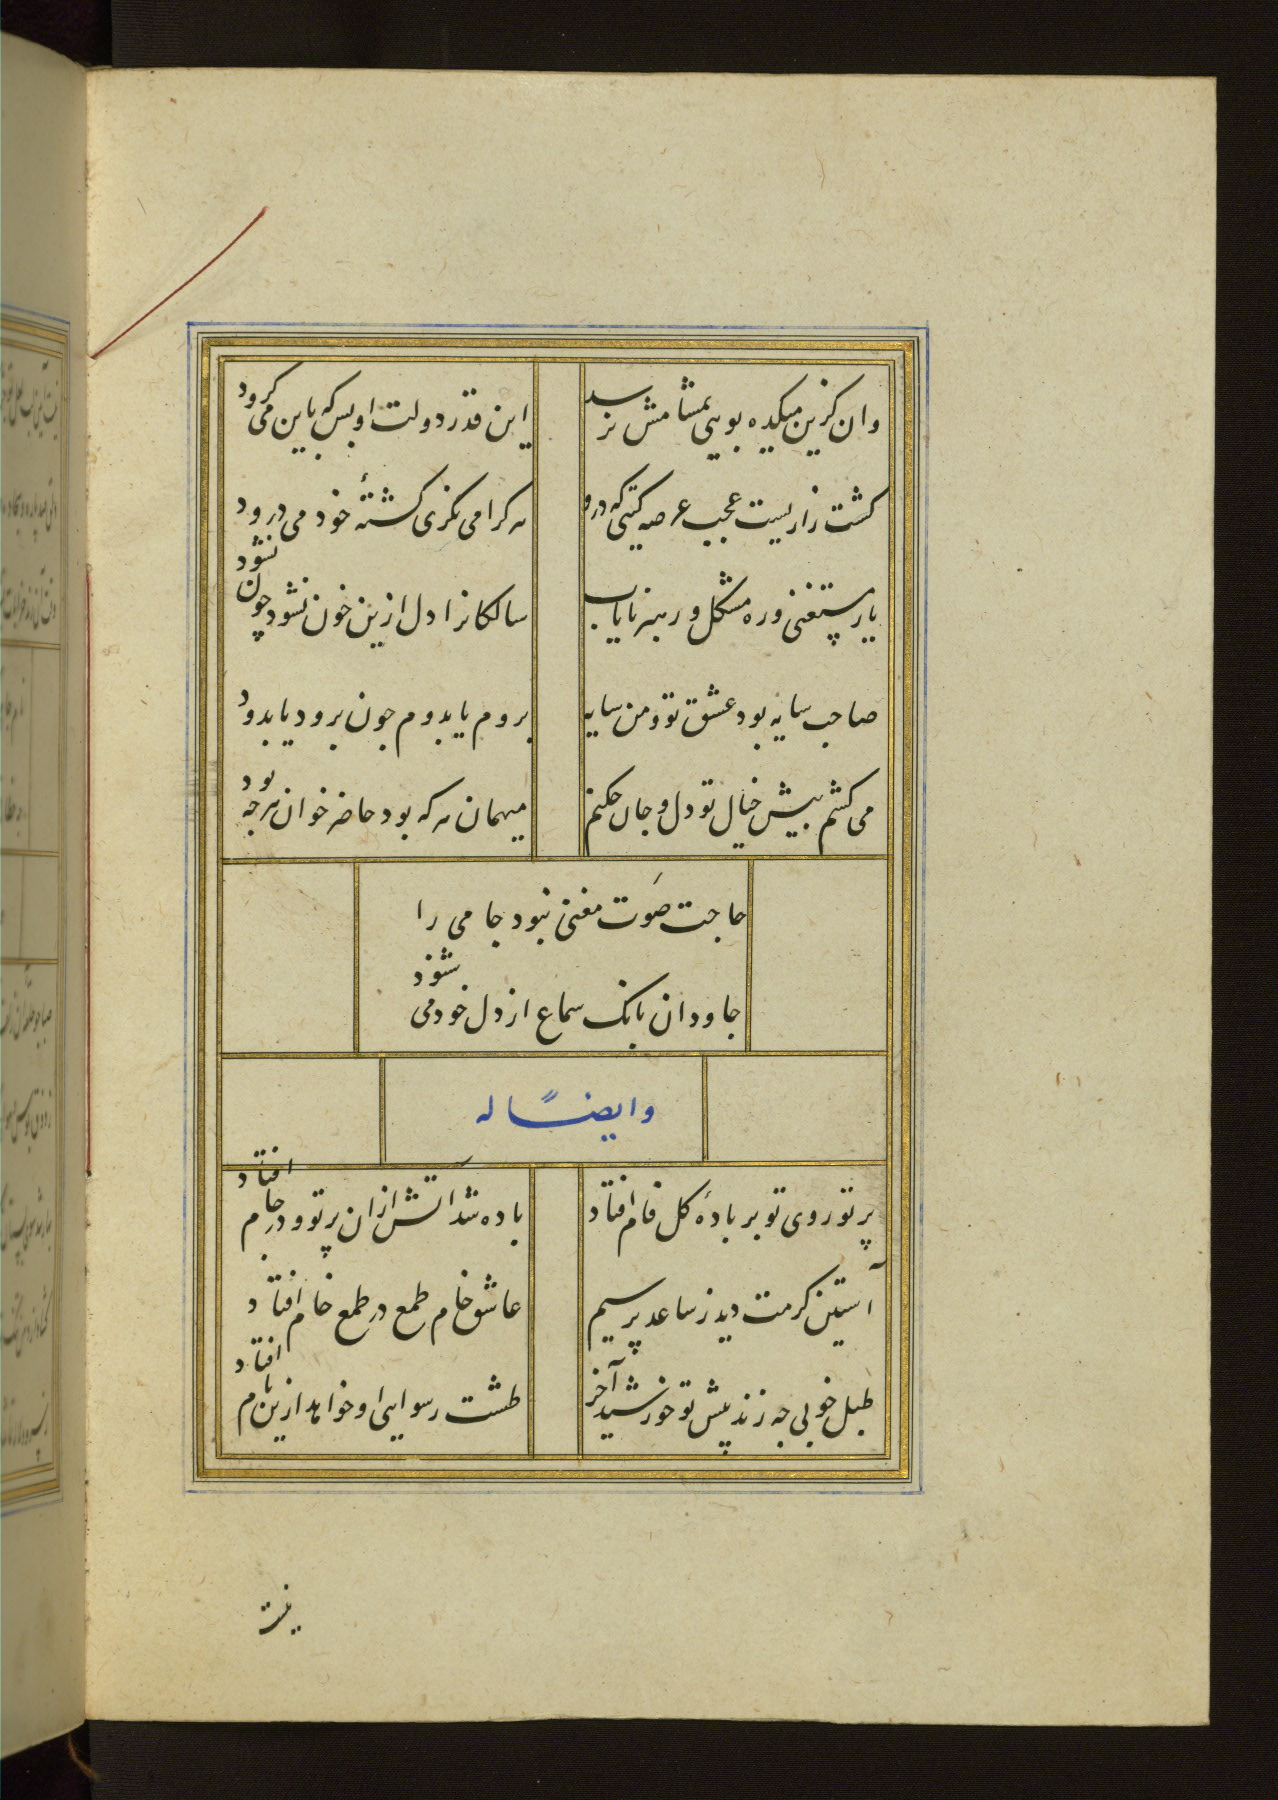 وان کزین میکده بویی بمشامش نرسد
این قدر دولت او بس که باین می گرود
کشت زاریست عجب عرصه کیتی که درو
هر کرا می نکری کشتهٔ خود می درود
یار مستغنی و ره مشکل و رهبر نایاب
سالکانرا دل ازین خون نشود چون نشود
صاحب سایه بود عشق تو و من سایه
بروم یا بدوم چون برود یا بدود
می کشم پیش خیال تو دل و جان حکنم
میهمان هر که بود حاضر خوان هرچه بود
حاجت صَوت مغنی نبود جامی را
جاودان بانک سماع از دل خود می شنود
وایضًا له
پرتو روی تو بر بادهٔ کل فام افتاد
باده شد آتش ازان پرتو و در جام افتاد
آستین کرمت دید ز ساعد پر سیم
عاشق خام طمع در طمع خام افتاد
طبل خوبی چه زند پیش تو خورشید آخر
طشت رسوایی او خواهد ازین بام افتاد
نیست